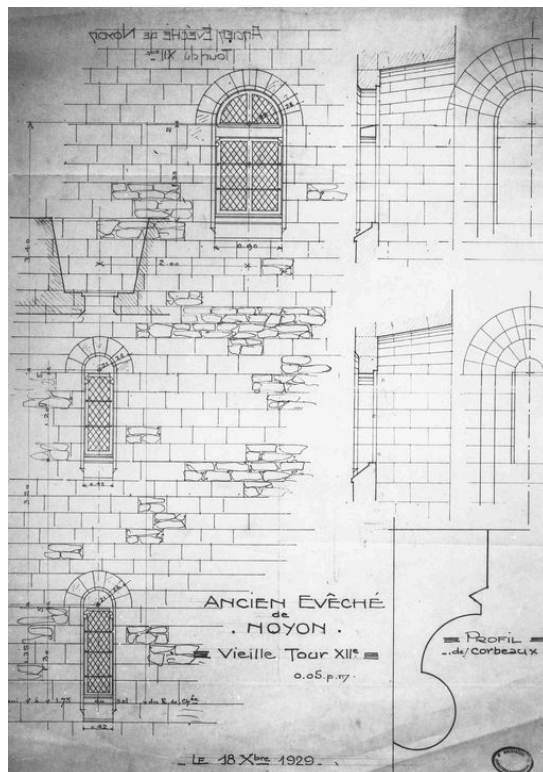 Ancien Evêché de Noyon
Tour du XIIeme
2.00
3.40
0.90
2.00
1.20
0.42
3.20
ANCIEN EVÊCHÉ
de
. NOYON .
Vieille Tour XIIe
0.05.p.m.
PROFIL
des corbeaux
1.35
0.42
LE 18 Xbre 1929.